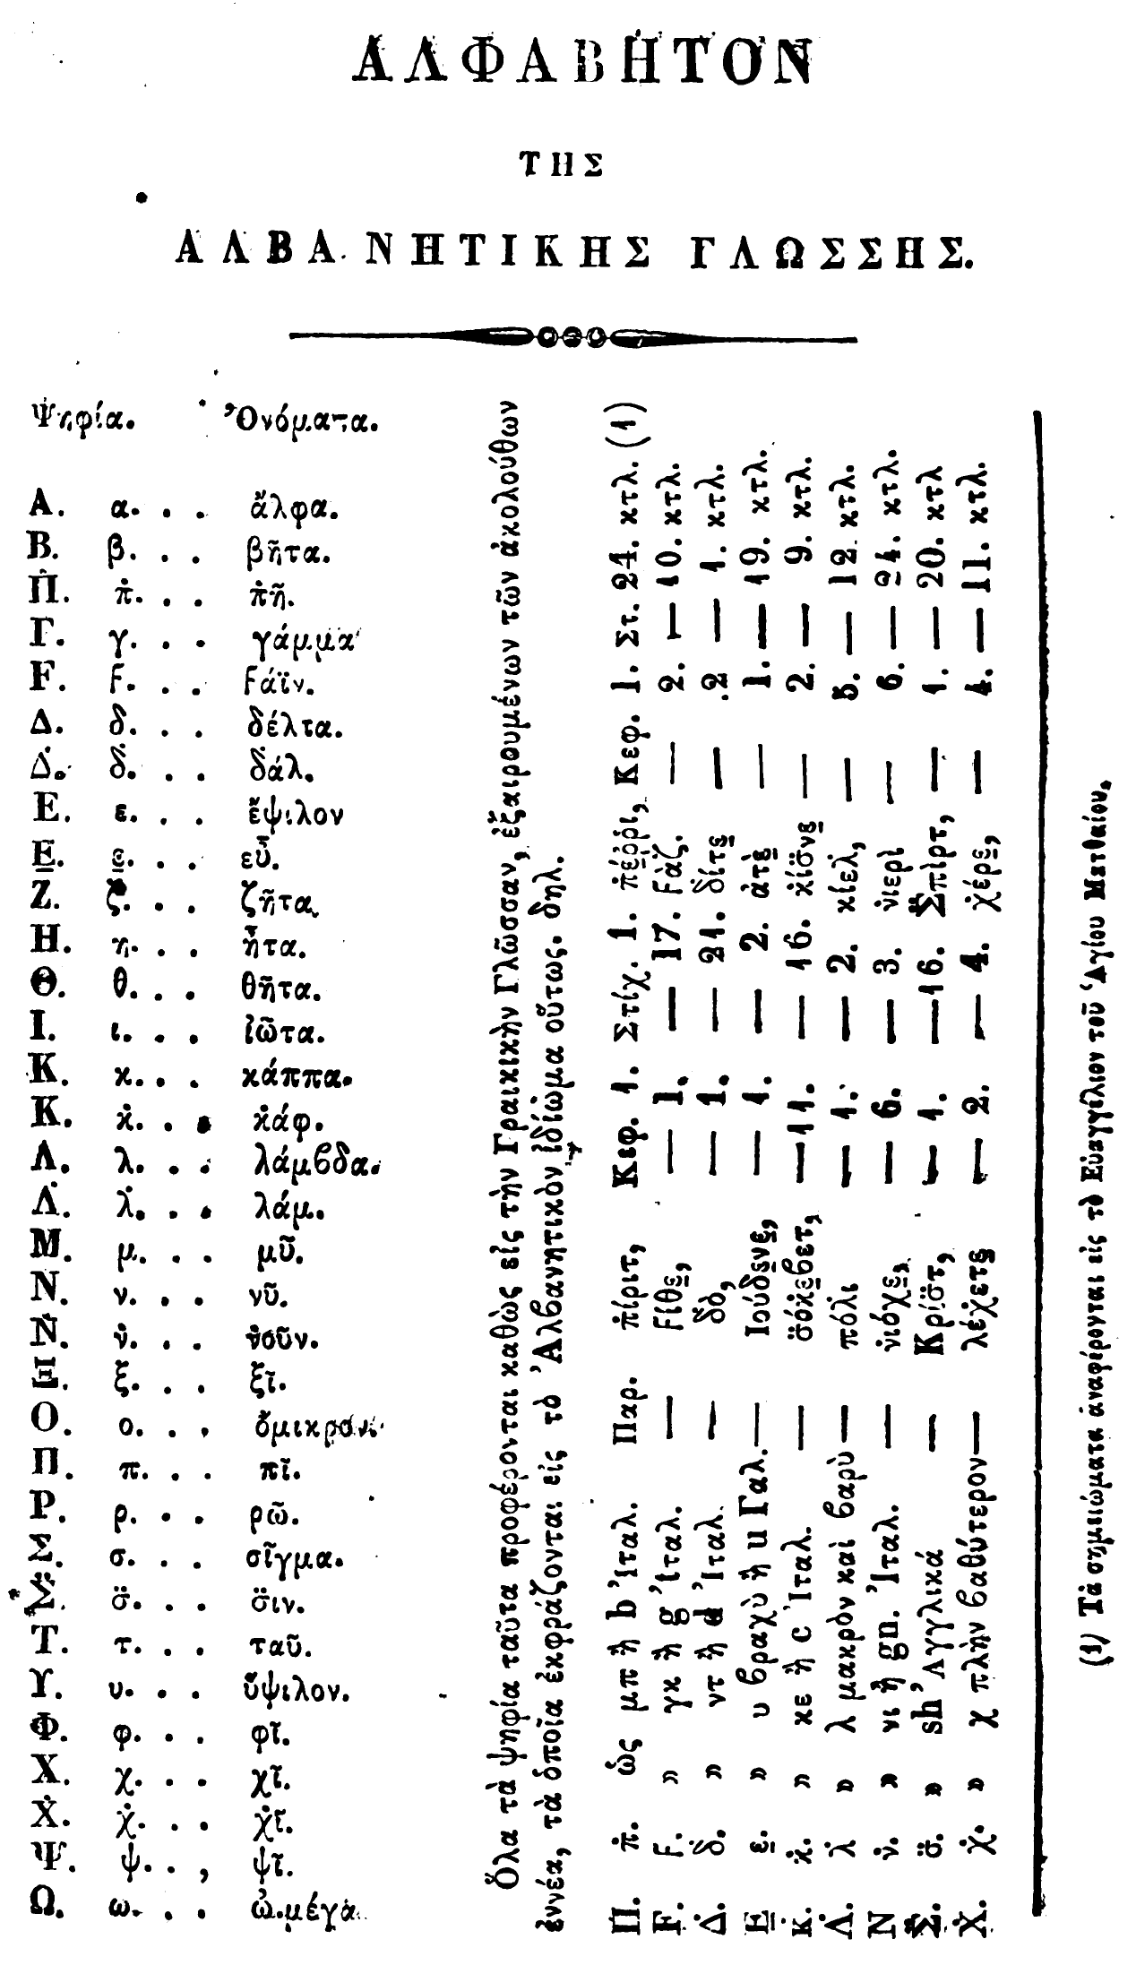 ΑΛΦΑΒΗΤΟΝ
ΤΗΣ
ΑΛΒΑΝΗΤΙΚΗΣ ΓΛΩΣΣΗΣ.
Ψηφία. Ὀνόματα.
Α. α. . . ἄλφα.
Β. β. . . βῆτα.
Π̇. π̇. . . π̇ῆ.
Γ. γ. . . γάμμα
F. ϝ. . . ϝάϊν.
Δ. δ. . . δέλτα.
Δ̇. δ̇. . . δ̇άλ.
Ε. ε. . . ἔψιλον
Ε̲. ε̲. . . εὖ.
Ζ. ζ. . . ζῆτα.
Η. η. . . ἦτα.
Θ. θ. . . θῆτα.
Ι. ι. . . ἰῶτα.
Κ. κ. . . κάππα.
Κ̇. κ̇. . . κ̇άφ.
Λ. λ. . . λάμϐδα.
Λ̇. λ̇. . . λάμ.
Μ. μ. . . μῦ.
Ν. ν. . . νῦ.
Ν̇. ν̇. . . ν̇οῦν.
Ξ. ξ. . . ξῖ.
Ο. ο. . . ὄμικρον.
Π. π. . . πῖ.
Ρ. ρ. . . ρῶ.
Σ. σ. . . σῖγμα.
Σ̈. σ̈. . . σ̈ιν.
Τ. τ. . . ταῦ.
Υ. υ. . . ὕψιλον.
Φ. φ. . . φῖ.
Χ. χ. . . χῖ.
Χ̇. χ̇. . . χ̇ῖ.
Ψ. ψ. . , ψῖ.
Ω. ω. . . ὠ.μέγα.
Ὅλα τὰ ψηφία ταῦτα προφέρονται καθὼς εἰς τὴν Γραικικὴν Γλῶσσαν, ἐξαιρουμένων τῶν ἀκολούθων
ἐννέα, τὰ ὁποῖα ἐκφράζονται εἰς τὸ Ἀλϐανητικὸν ἰδίωμα οὕτως. δηλ.
Π̇. π̇. ὡς μπ ἢ b Ἰταλ. Παρ. π̇ίριτ, Κεφ. 1. Στίχ. 1. π̇έρ̇ρ̇ι, Κεφ. 1. Στ. 24. κτλ. (1)
F. ϝ. » γκ ἢ g Ἰταλ. — ϝίθε̲, — 1. — 17. ϝὰζ. — 2. — 10. κτλ.
Δ̇. δ̇. » ντ ἢ d Ἰταλ — δ̇ὸ, — 1. — 21. δ̇ίτε̲ — 2 — 1. κτλ.
Ε̲. ε̲. » υ ϐραχὺ ἢ u Γαλ. — Ιούδενε̲, — 1. — 2. ἀτὲ̲ — 1. — 19. κτλ.
Κ̇. κ̇. » κε ἢ c Ἰταλ. — σ̈όκ̇ε̲ϐετ, — 11. — 16. κ̇ίσ̈νε̲ — 2. — 9. κτλ.
Λ̇. λ̇ » λ μακρὸν καὶ ϐαρὺ — πόλ̇ι — 1. — 2. κίελ̇, — 5. — 12. κτλ.
Ν̇ ν̇. » νι ἢ gn. Ἰταλ. — ν̇ιόχε̲, — 6. — 3. ν̇ιερὶ — 6. — 24. κτλ.
Σ̈. σ̈. » sh Ἀγγλικά — Κρίσ̈τ, — 1. — 16. Σ̈πίρτ, — 1. — 20. κτλ
Χ̇. χ̇. » χ πλὴν ϐαθύτερον — λέχ̇ετε̲ — 2. — 4. χ̇έρε̲, — 4. — 11. κτλ.
(1) Τὰ σημειώματα ἀναφέρονται εἰς τὸ Εὐαγγέλιον τοῦ Ἁγίου Ματθαίου.